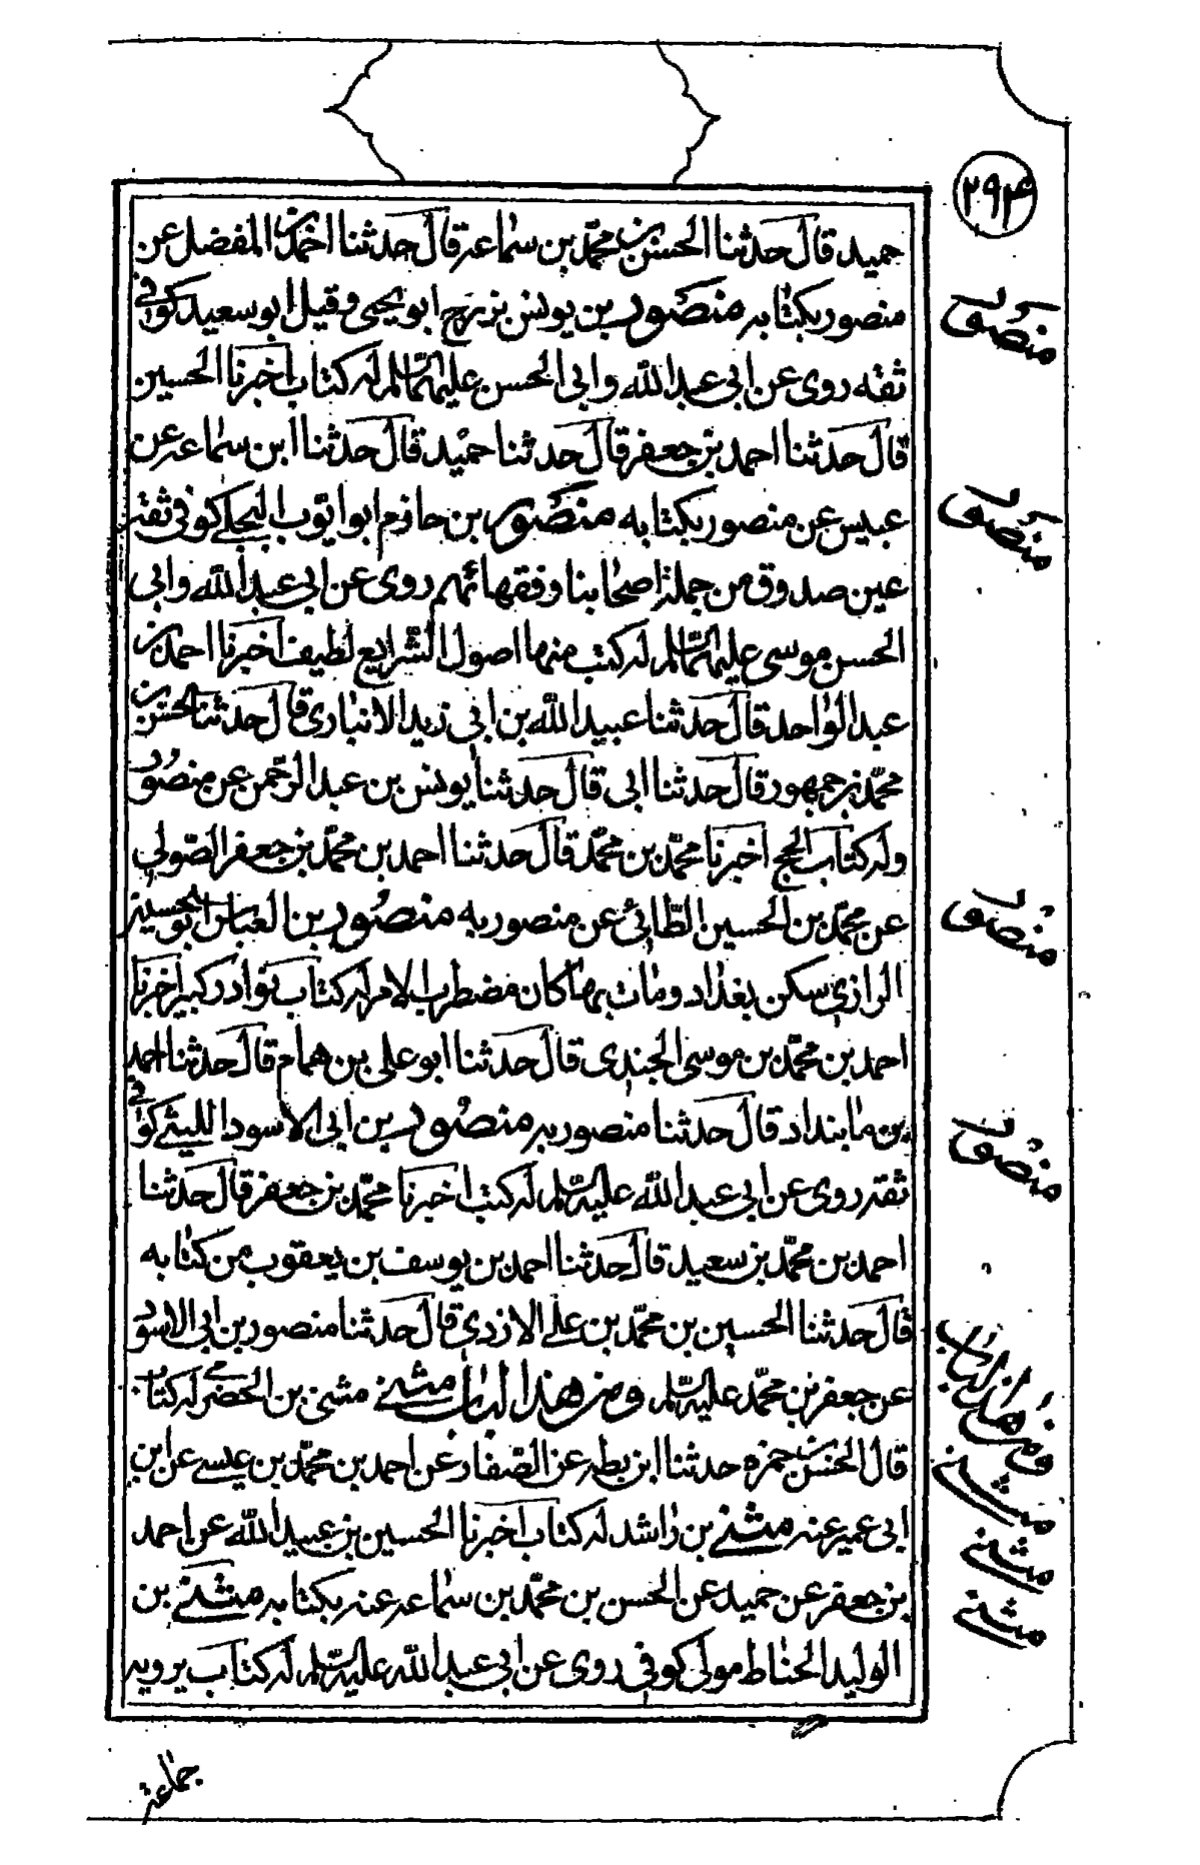 ٢٩۴
حميد قال حدثنا الحسن بن محمّد بن سماعة قال حدثنا احمد بن المفضل عن
منصور بكتابه منصور بن يونس بزرج ابو يحيى وقيل ابو سعيد كوفى
ثقه روى عن ابى عبد الله وابى الحسن عليهما السّلم له كتاب اخبرنا الحسين
قال حدثنا احمد بن جعفر قال حدثنا حميد قال حدثنا ابن سماعة عن
عبيس عن منصور بكتابه منصور بن حازم ابو ايّوب البجلى كوفى ثقة
عين صدوق من جملة اصحابنا وفقهائهم روى عن ابى عبد الله وابى
الحسن موسى عليهما السّلم له كتب منها اصول الشّرايع لطيف اخبرنا احمد بن
عبد الواحد قال حدثنا عبيد الله بن ابى زيد الانبارى قال حدثنا الحسن بن
محمّد بن جمهور قال حدثنا ابى قال حدثنا يونس بن عبد الرّحمن عن منصور
وله كتاب الحج اخبرنا محمّد بن محمّد قال حدثنا احمد بن محمّد بن جعفر الصّولى
عن محمّد بن الحسين الطّائى عن منصور به منصور بن العباس ابو الحسين
الرازى سكن بغداد ومات بها كان مضطرب الامر له كتاب نوادر كبير اخبرنا
احمد بن محمّد بن موسى الجندى قال حدثنا ابو على بن همام قال حدثنا احمد
بن مابنداد قال حدثنا منصور به منصور بن ابى الاسود الليثى كوفى
ثقة روى عن ابى عبد الله عليه السّلم له كتب اخبرنا محمّد بن جعفر قال حدثنا
احمد بن محمّد بن سعيد قال حدثنا احمد بن يوسف بن يعقوب من كتابه
قال حدثنا الحسين بن محمّد بن على الازدى قال حدثنا منصور بن ابى الاسود
عن جعفر بن محمّد عليه السّلم ومن هذا الباب مثنى مثنى بن الحضرمى له كتاب
قال الحسن بن حمزه حدثنا ابن بطه عن الصّفار عن احمد بن محمّد بن عيسى عن ابن
ابى عمير عنه مثنى بن راشد له كتاب اخبرنا الحسين بن عبيد الله عن احمد
بن جعفر عن حميد عن الحسن بن محمّد بن سماعه عنه بكتابه مثنى بن
الوليد الحناط مولى كوفى روى عن ابى عبد الله عليه السّلم له كتاب يرويه
جماعة
منصور
منصور
منصور
منصور
ومن هذا الباب
مثنى
مثنى
مثنى